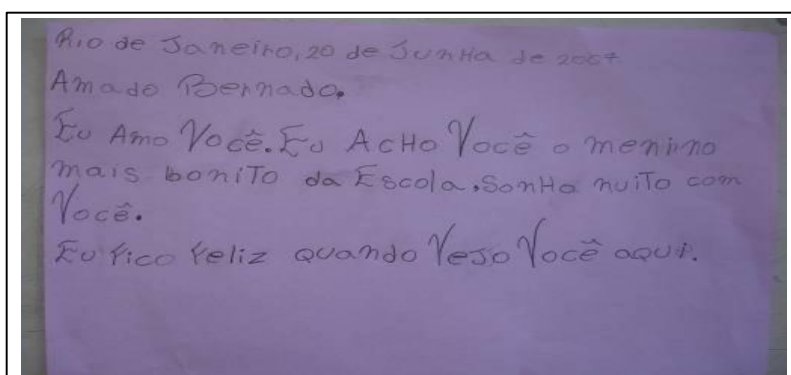 Rio de Janeiro, 20 de Junha de 2007
Amado Bernado.
Eu Amo Você. Eu Acho Você o menino
mais bonito da Escola, Sonha nuito com
Você.
Eu fico feliz quando Vejo Você aqui.